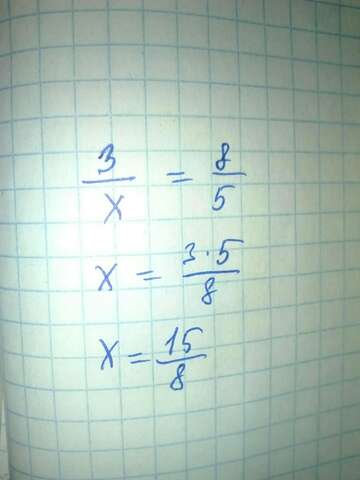 3/x = 8/5
x = 3·5/8
x = 15/8